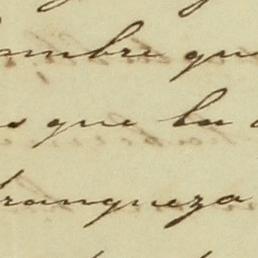 ambre que
s que la
franqueza